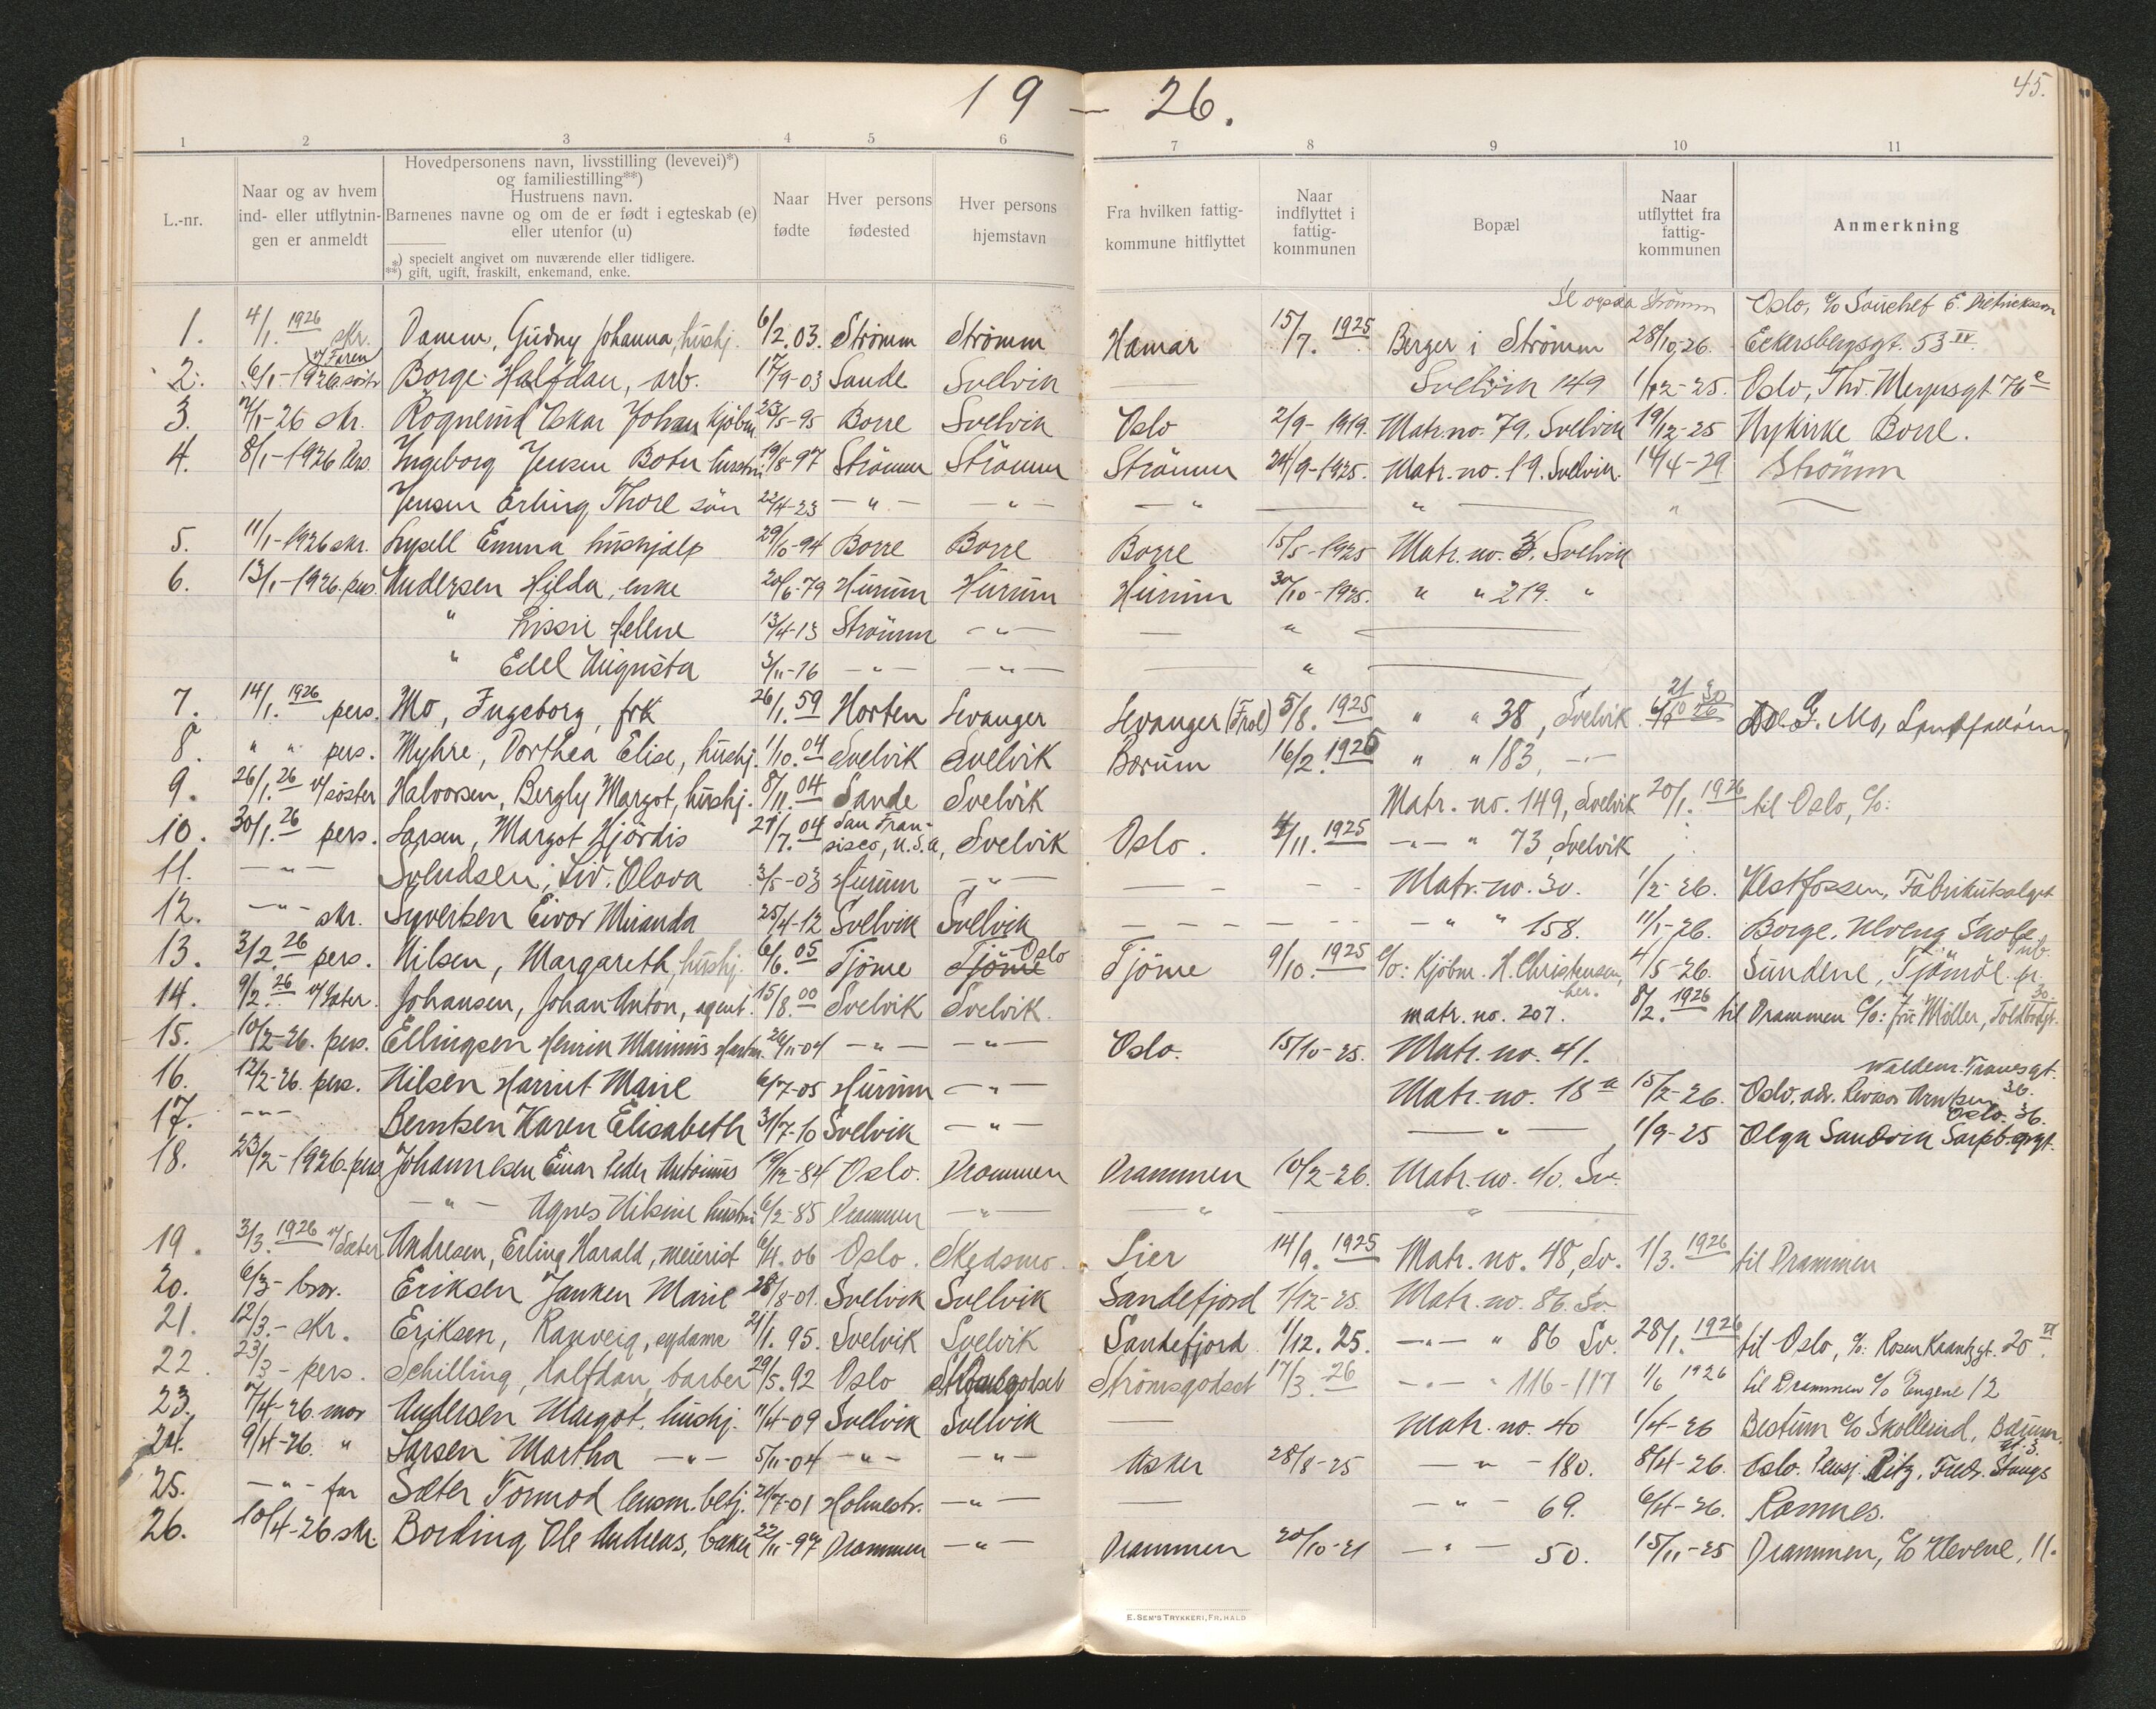 19 — 26.
45.
1 2 3 4 5 6 7 8 9 10 11
L.-nr.
Naar og av hvem
ind- eller utflytnin-
gen er anmeldt
Hovedpersonens navn, livsstilling (levevei)*)
og familiestilling**)
Hustruens navn.
Barnenes navne og om de er født i egteskab (e)
eller utenfor (u)
*) specielt angivet om nuværende eller tidligere.
**) gift, ugift, fraskilt, enkemand, enke.
Naar
fødte
Hver persons
fødested
Hver persons
hjemstavn
Fra hvilken fattig-
kommune hitflyttet
Naar
indflyttet i
fattig-
kommunen
Bopæl
Naar
utflyttet fra
fattig-
kommunen
Anmerkning
Se ogsaa Strömm Oslo, c/o
1. 4/1. 1926 skr. Damm, Gudny Johanna, hushj. 6/2. 03. Strömm Strömm Hamar 15/7. 1925 Berger i Strömm 28/10-26. Eckersbergsgt. 53 IV.
2. 6/1-1926 Borge Halfdan, arb. 17/9-03 Sande Svelvik — Svelvik 149 1/12-25. Oslo, Thv. Meyersgt. 76 c
3. 7/1-26 skr. Rognerud Oskar Johan Kjöbm. 23/5-95 Borre Svelvik Oslo 2/9-1919. Matr. no. 79. Svelvik 19/12-25 Nykirke Borre.
4. 8/1-1926 Pers. Ingeborg Jensen Boter hustru 19/8-97 Strömm Strömm Strömm 24/9-1925. Matr. no. 19. Svelvik. 14/4-29 Strömm
Jensen Erling Thore sön 22/4-23 — " — — " — — " — " "
5. 11/1-1926 skr. Lysell Emma hushjelp 29/10-94 Borre Borre Borre 15/5-1925 Matr. no. 3. Svelvik
6. 13/1-1926. pers. Andersen Hilda, enke 20/6-79 Hurum Hurum Hurum 30/10-1925. " " 219. "
" Lissie Hellene 13/4-13 Strömm — " — — " —
" Edel Augusta 3/11-16 — " — — " — — " —
7. 14/1. 1926 pers. Mo, Ingeborg, frk 26/1. 59 Horten Levanger Levanger (Frol) 5/8. 1925 " " 38, Svelvik G. Mo,
8. " " pers. Myhre, Dorthea Elise, hushj. 1/10. 04 Svelvik Svelvik Bærum 16/2. 1925 " " 183, — " —
9. 26/1. 26 v/ söster Halvorsen, Bergly Margot, hushj. 8/11. 04 Sande Svelvik Matr. no. 149, Svelvik 20/1. 1926 til Oslo, c/o:
10. 30/1. 26 pers. Larsen, Margot Hjördis 21/7. 04 San Fran-
sisco, U.S.A, Svelvik Oslo. 4/11. 1925 — " — " 73, Svelvik
11. — " — Svendsen, Liv. Olava 3/5-03 Hurum — " — — Matr. no. 30. 1/2-26. Vestfossen, Fabrikutsalget
12. — " — skr. Syvertsen Eivor Miranda 25/4-12 Svelvik Svelvik — — " " 158. 11/1-26. Borge. Ulveng Skole
13. 3/2. 26 pers. Nilsen, Margareth, hushj. 6/6. 05 Tjöme Tjöme Oslo Tjöme 9/10. 1925 c/o: Kjöbm. H. Christensen, her. 4/5-26. Sundene, Tjömö
14. 9/2. 26 v/ Sæter. Johansen, Johan Anton, agent. 15/8. 00 Svelvik Svelvik. matr. no. 207. 8/2. 1926 til Drammen c/o: fru Möller, Toldbodgt. 30.
15. 10/2-26. pers. Ellingsen Henrik Marinius 26/11-04 — " — — " — Oslo. 15/10-25. Matr. no. 41.
Waldem. Tranesgt. 36.
16. 12/2-26. pers. Nilsen Harriet Marie 6/7-05 Hurum — " — Matr. no. 18 a 15/2-26. Oslo, adr. Revisor Arntsen
Oslo. 36.
17. — " — Berntsen Karen Elisabeth 31/7-10 Svelvik — " — — " — 1/9-25 Olga Sandvik Sarpb.
18. 23/2-1926-pers Johannesen Einar Peder Antonius 19/12-84 Oslo. Drammen Drammen 10/2-26. Matr. no. 40. Sv.
— " — Agnes Nilsine hustru 6/2-85 Drammen — " — — " — "
19. 3/3. 1926 v/ Sæter Andresen, Erling Harald, meierist 6/4. 06 Oslo. Skedsmo. Lier 14/9. 1925 Matr. no. 48, Sv. 1/3. 1926 til Drammen
20. 6/3- bror. Eriksen Janken Marie 28/8-01. Svelvik Svelvik Sandefjord 1/12-25. Matr. no. 86. Sv.
21. 12/3.- skr. Eriksen, Ranveig, sydame 21/1. 95. Svelvik Svelvik Sandefjord 1/12. 25. — " — " 86 Sv. 28/1. 1926 til Oslo, c/o: Rosenkrantzgt. 20 VI.
22. 23/3 - pers. Schilling, Halfdan, barber 29/5. 92 Oslo Strömsgodset Strömsgodset 17/3. 26 — " — " 116-117 1/6 1926 til Drammen c/o Engene 12
23. 7/4-26. mor Andersen Margot, hushj. 11/4-09 Svelvik Svelvik — Matr. no. 40 1/4-26 Bestum c/o Skollerud, Bærum.
24. 9/4-26. " Larsen Martha — " — 5/11-04 — " — — " — Asker 28/8-25 — " — 180. 8/4-26. Oslo. Pensj. Ritz, Fredr. Stangs gt. 3.
25. — " — far Sæter Tormod lensm. betj. 21/7-01 Holmestr. — " — — — " — 69. 6/4-26. Ramnes.
26. 10/4-26 skr. Bording Ole Andreas, baker 22/11-97 Drammen — " — Drammen 20/10-21 — " — 50. 15/11-25 Drammen, c/o Klevene, 11.
E. SEM'S TRYKKERI, FR.HALD